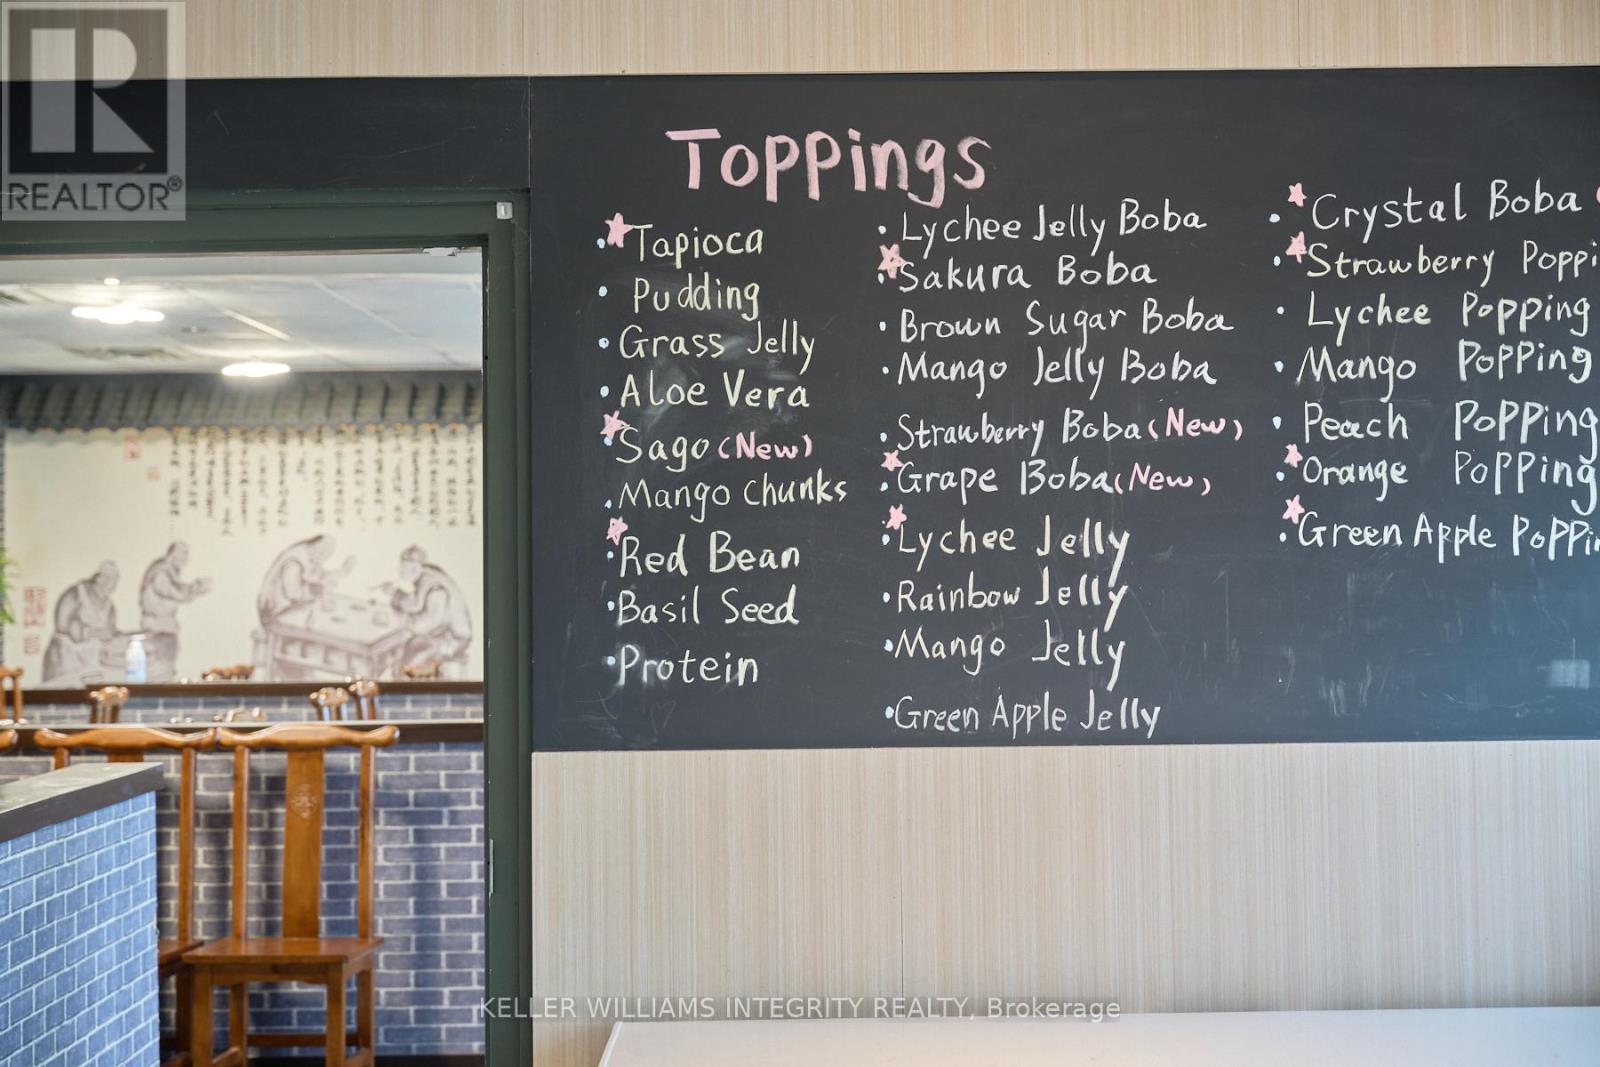 REALTOR®
Toppings
Tapioca
Pudding
Grass Jelly
Aloe Vera
Sago (New)
Mango Chunks
Red Bean
Basil Seed
Protein
Lychee Jelly Boba
Sakura Boba
Brown Sugar Boba
Mango Jelly Boba
Strawberry Boba (New)
Grape Boba (New)
Lychee Jelly
Rainbow Jelly
Mango Jelly
Green Apple Jelly
Crystal Boba
Strawberry Poppi
Lychee Popping
Mango Popping
Peach Popping
Orange Popping
Green Apple Poppi
KELLER WILLIAMS INTEGRITY REALTY, Brokerage